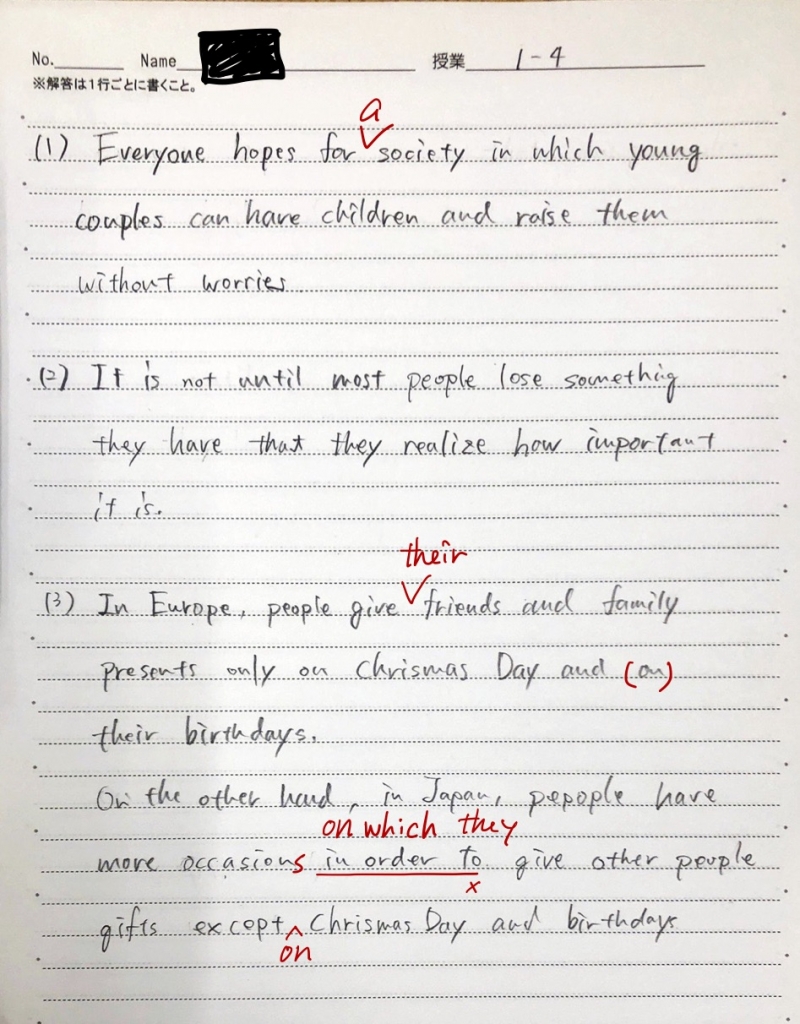 No. Name 授業 1-4
※解答は1行ごとに書くこと。
a
(1) Everyone hopes for society in which young
couples can have children and raise them
without worries
(2) It is not until most people lose somethig
they have that they realize how important
it is.
their
(3) In Europe, people give friends and family
presents only on Chrismas Day and (on)
their birthdays.
On the other hand, in Japan, pepople have
on which they
more occasions in order to give other people
x
gifts except Chrismas Day and birthdays
on